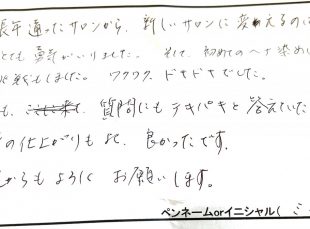 長年通ったサロンから、新しいサロンに変えるのは
とても勇気がいりました。そして、初めてのヘナ染め
もしました。ワクワク、ドキドキでした。
も、質問にもテキパキと答えていた
の仕上がりも よく、良かったです。
からも よろしく お願いします。
ペンネームorイニシャル( ミ